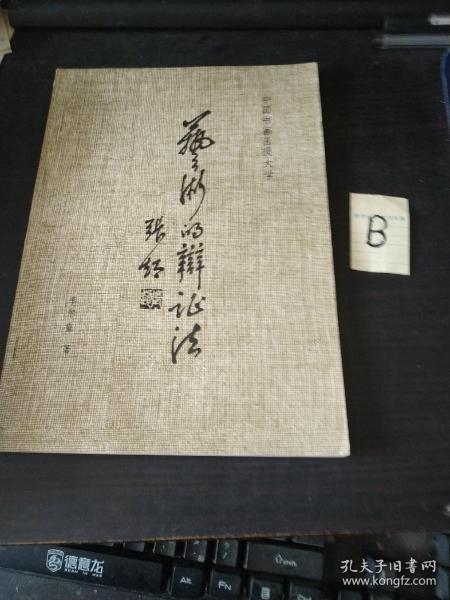 中国书画函授大学
艺术的辩证法
张仃
著
B
德意龙
Alt
Fn
Ctrl
孔夫子旧书网
www.kongfz.com